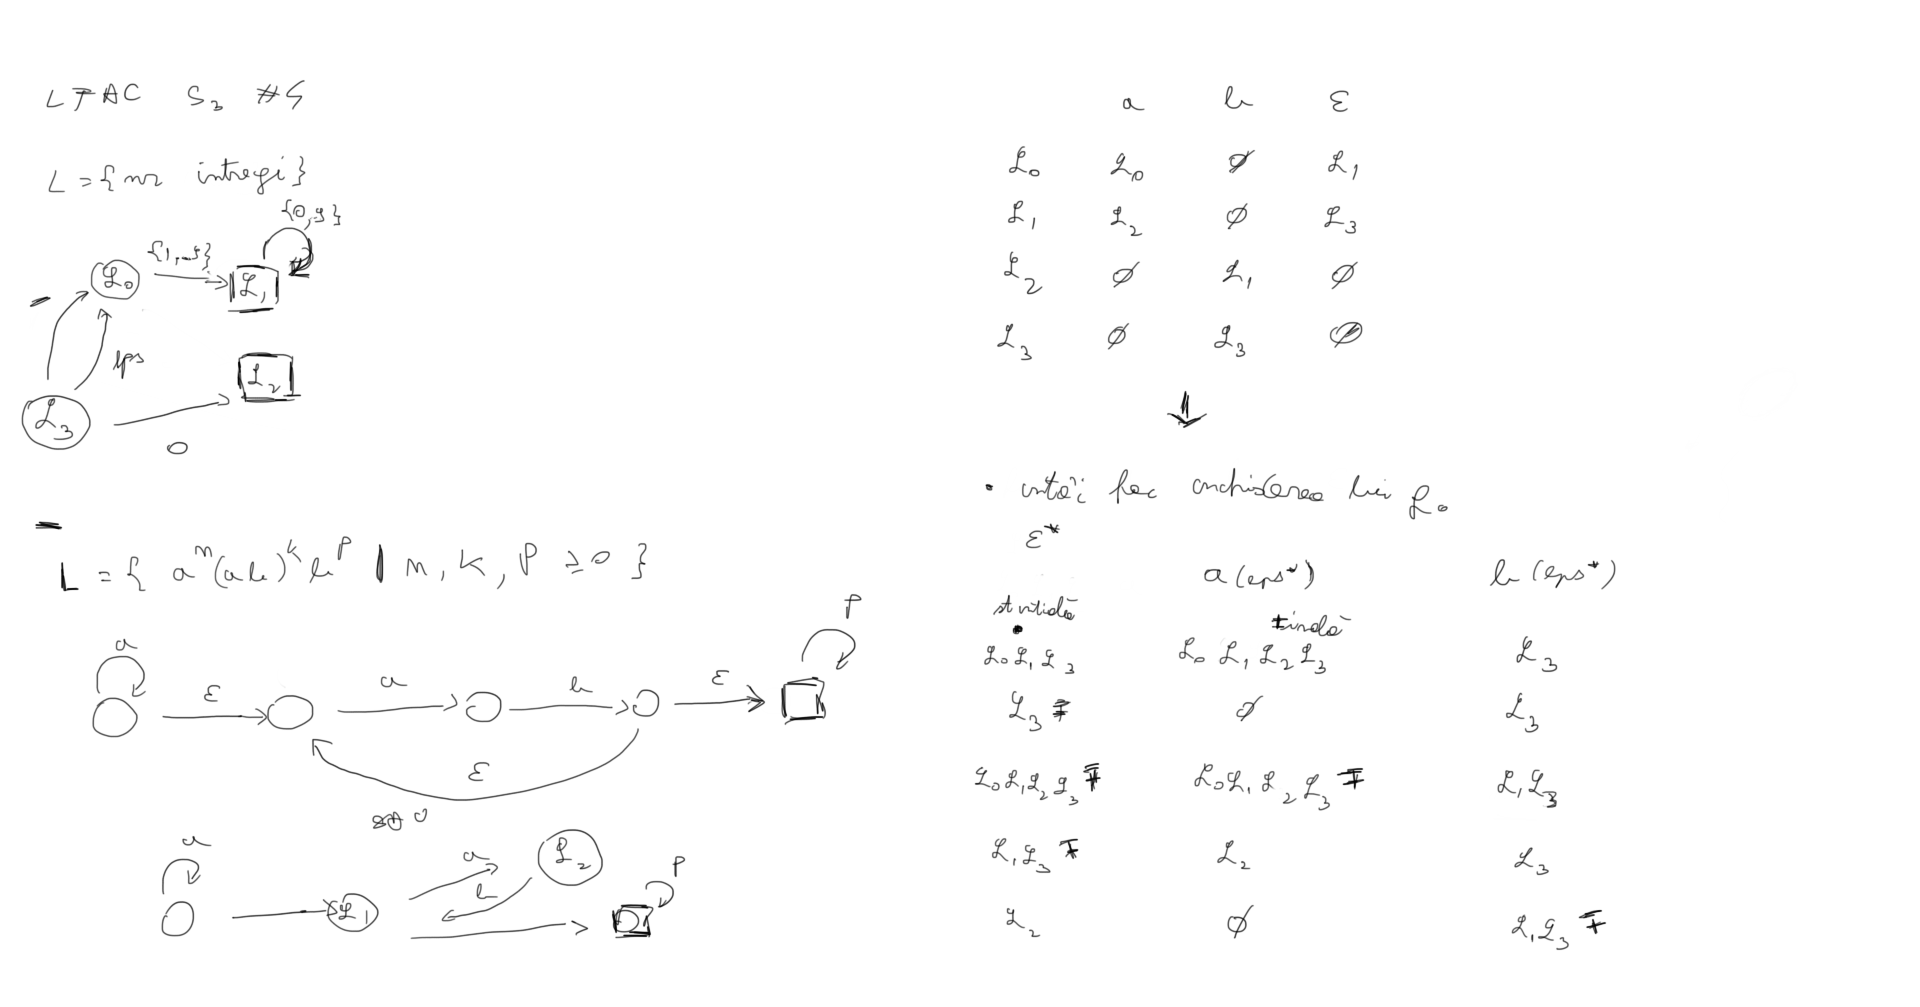 LFAC S3 #4
L = { nr intregi }
{0,9}
{1,..9}
L0
L1
-
eps
L2
L3
0
L = { a^n (ab)^k b^p | n, k, p ≥ 0 }
a
ε
a
b
ε
p
ε
a
a
L2
b
p
L1
a b ε
L0 L0 ∅ L1
L1 L2 ∅ L3
L2 ∅ L1 ∅
L3 ∅ L3 ∅
↓
• întâi fac închiderea lui L0
ε*
a (eps*) b (eps*)
L0 L1 L3 L0 L1 L2 L3 L3
L3 F ∅ L3
L0 L1 L2 L3 F L0 L1 L2 L3 F L1 L3
L1 L3 F L2 L3
L2 ∅ L1 L3 F